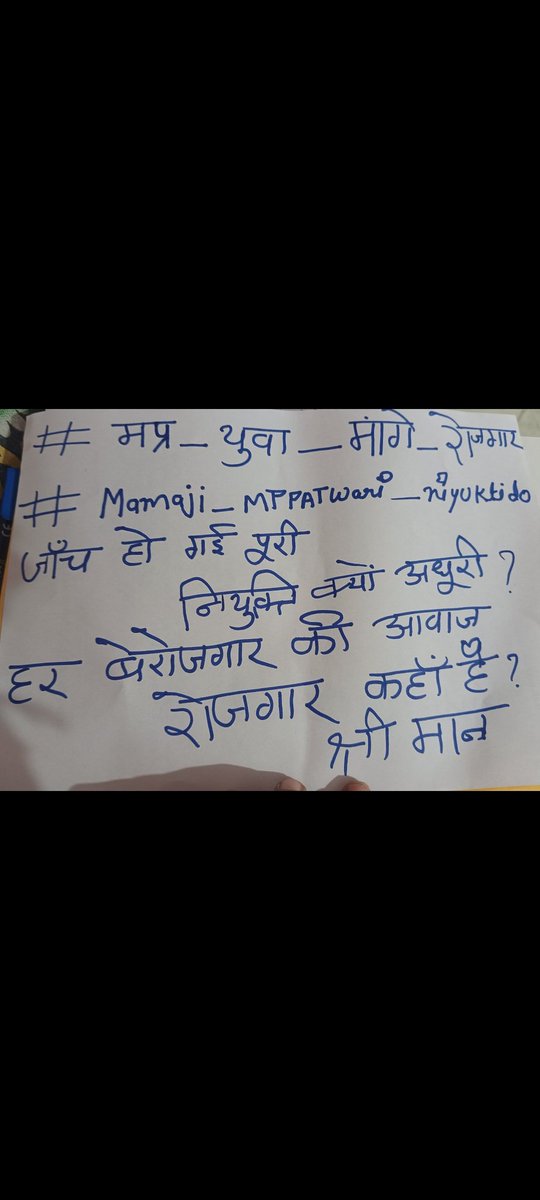 # मप्र_युवा_मांगे_रोजगार
# Mamaji_MPPATWari_niyuktido
जाँच हो गई पूरी
नियुक्ति क्यों अधूरी ?
हर बेरोजगार की आवाज
रोजगार कहाँ है ?
श्री मान